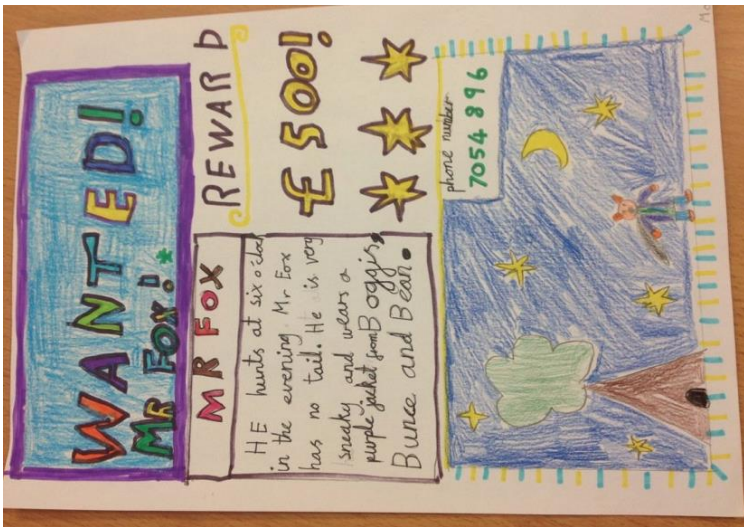 WANTED!
MR FOX!
MR FOX
HE hunts at six o'clock
in the evening. Mr Fox
has no tail. He is very
sneaky and wears a
purple jacket from Boggis,
Bunce and Bean.
REWARD
£500!
phone number
7054896